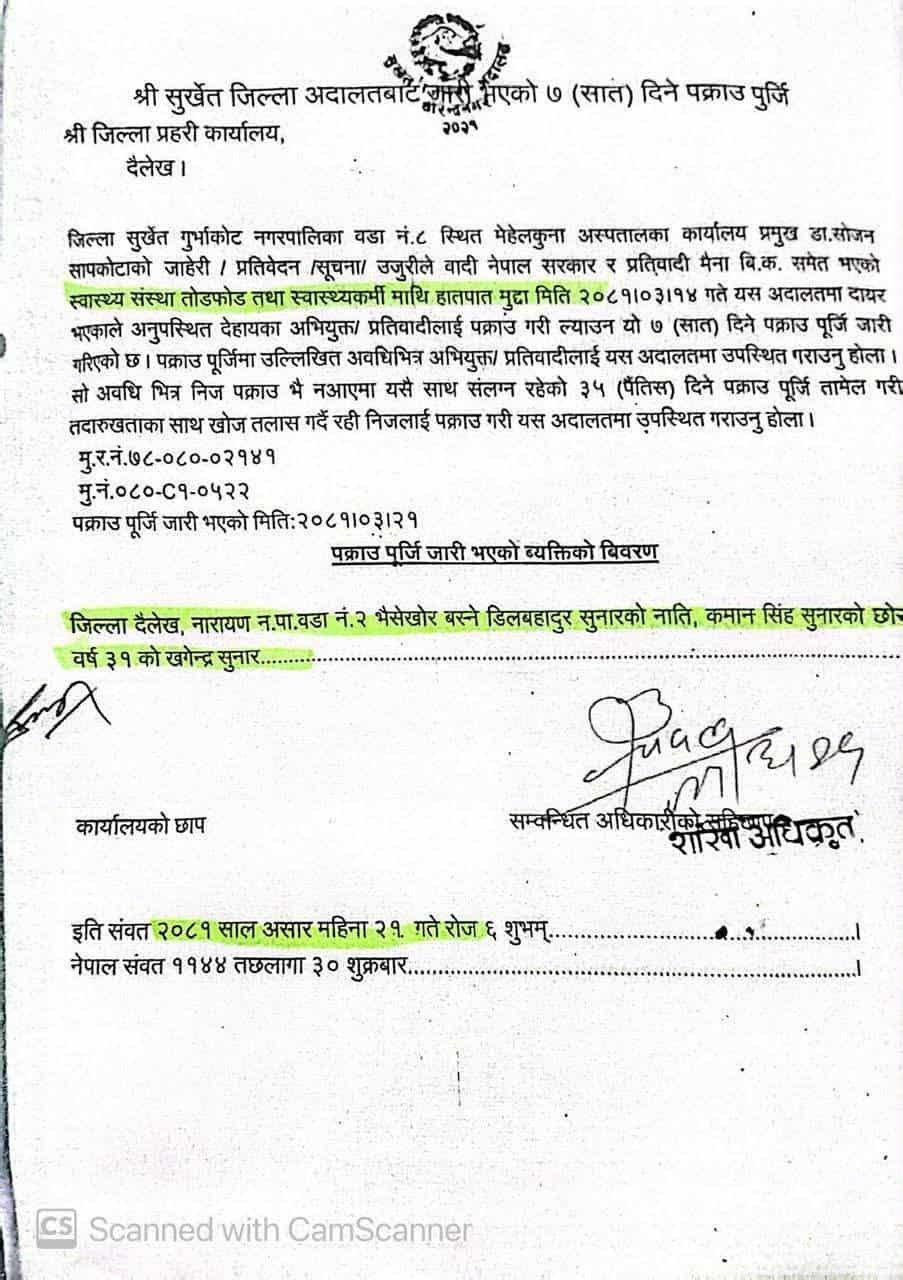 २०२१
श्री सुर्खेत जिल्ला अदालतबाट जारी भएको ७ (सात) दिने पक्राउ पुर्जि
श्री जिल्ला प्रहरी कार्यालय,
दैलेख।
जिल्ला सुर्खेत गुर्भाकोट नगरपालिका वडा नं.८ स्थित मेहेलकुना अस्पतालका कार्यालय प्रमुख डा.सोजन
सापकोटाको जाहेरी / प्रतिवेदन /सूचना/ उजुरीले वादी नेपाल सरकार र प्रतिवादी मैना बि.क. समेत भएको
स्वास्थ्य संस्था तोडफोड तथा स्वास्थ्यकर्मी माथि हातपात मुद्दा मिति २०८१।०३।१४ गते यस अदालतमा दायर
भएकाले अनुपस्थित देहायका अभियुक्त/ प्रतिवादीलाई पक्राउ गरी ल्याउन यो ७ (सात) दिने पक्राउ पूर्जि जारी
गरिएको छ। पक्राउ पूर्जिमा उल्लिखित अवधिभित्र अभियुक्त/ प्रतिवादीलाई यस अदालतमा उपस्थित गराउनु होला।
सो अवधि भित्र निज पक्राउ भै नआएमा यसै साथ संलग्न रहेको ३५ (पैंतिस) दिने पक्राउ पूर्जि तामेल गरी
तदारुखताका साथ खोज तलास गर्दै रही निजलाई पक्राउ गरी यस अदालतमा उपस्थित गराउनु होला।
मु.र.नं.७८-०८०-०२१४१
मु.नं.०८०-C१-०५२२
पक्राउ पूर्जि जारी भएको मिति:२०८१।०३।२१
पक्राउ पूर्जि जारी भएको ब्यक्तिको बिवरण
जिल्ला दैलेख, नारायण न.पा.वडा नं.२ भैसेखोर बस्ने डिलबहादुर सुनारको नाति, कमान सिंह सुनारको
वर्ष ३१ को खगेन्द्र सुनार
कार्यालयको छाप
सम्वन्धित अधिकारीको
शाखा अधिकृत
इति संवत २०८१ साल असार महिना २१ गते रोज ६ शुभम्
नेपाल संवत ११४४ तछलागा ३० शुक्रबार
CS Scanned with CamScanner